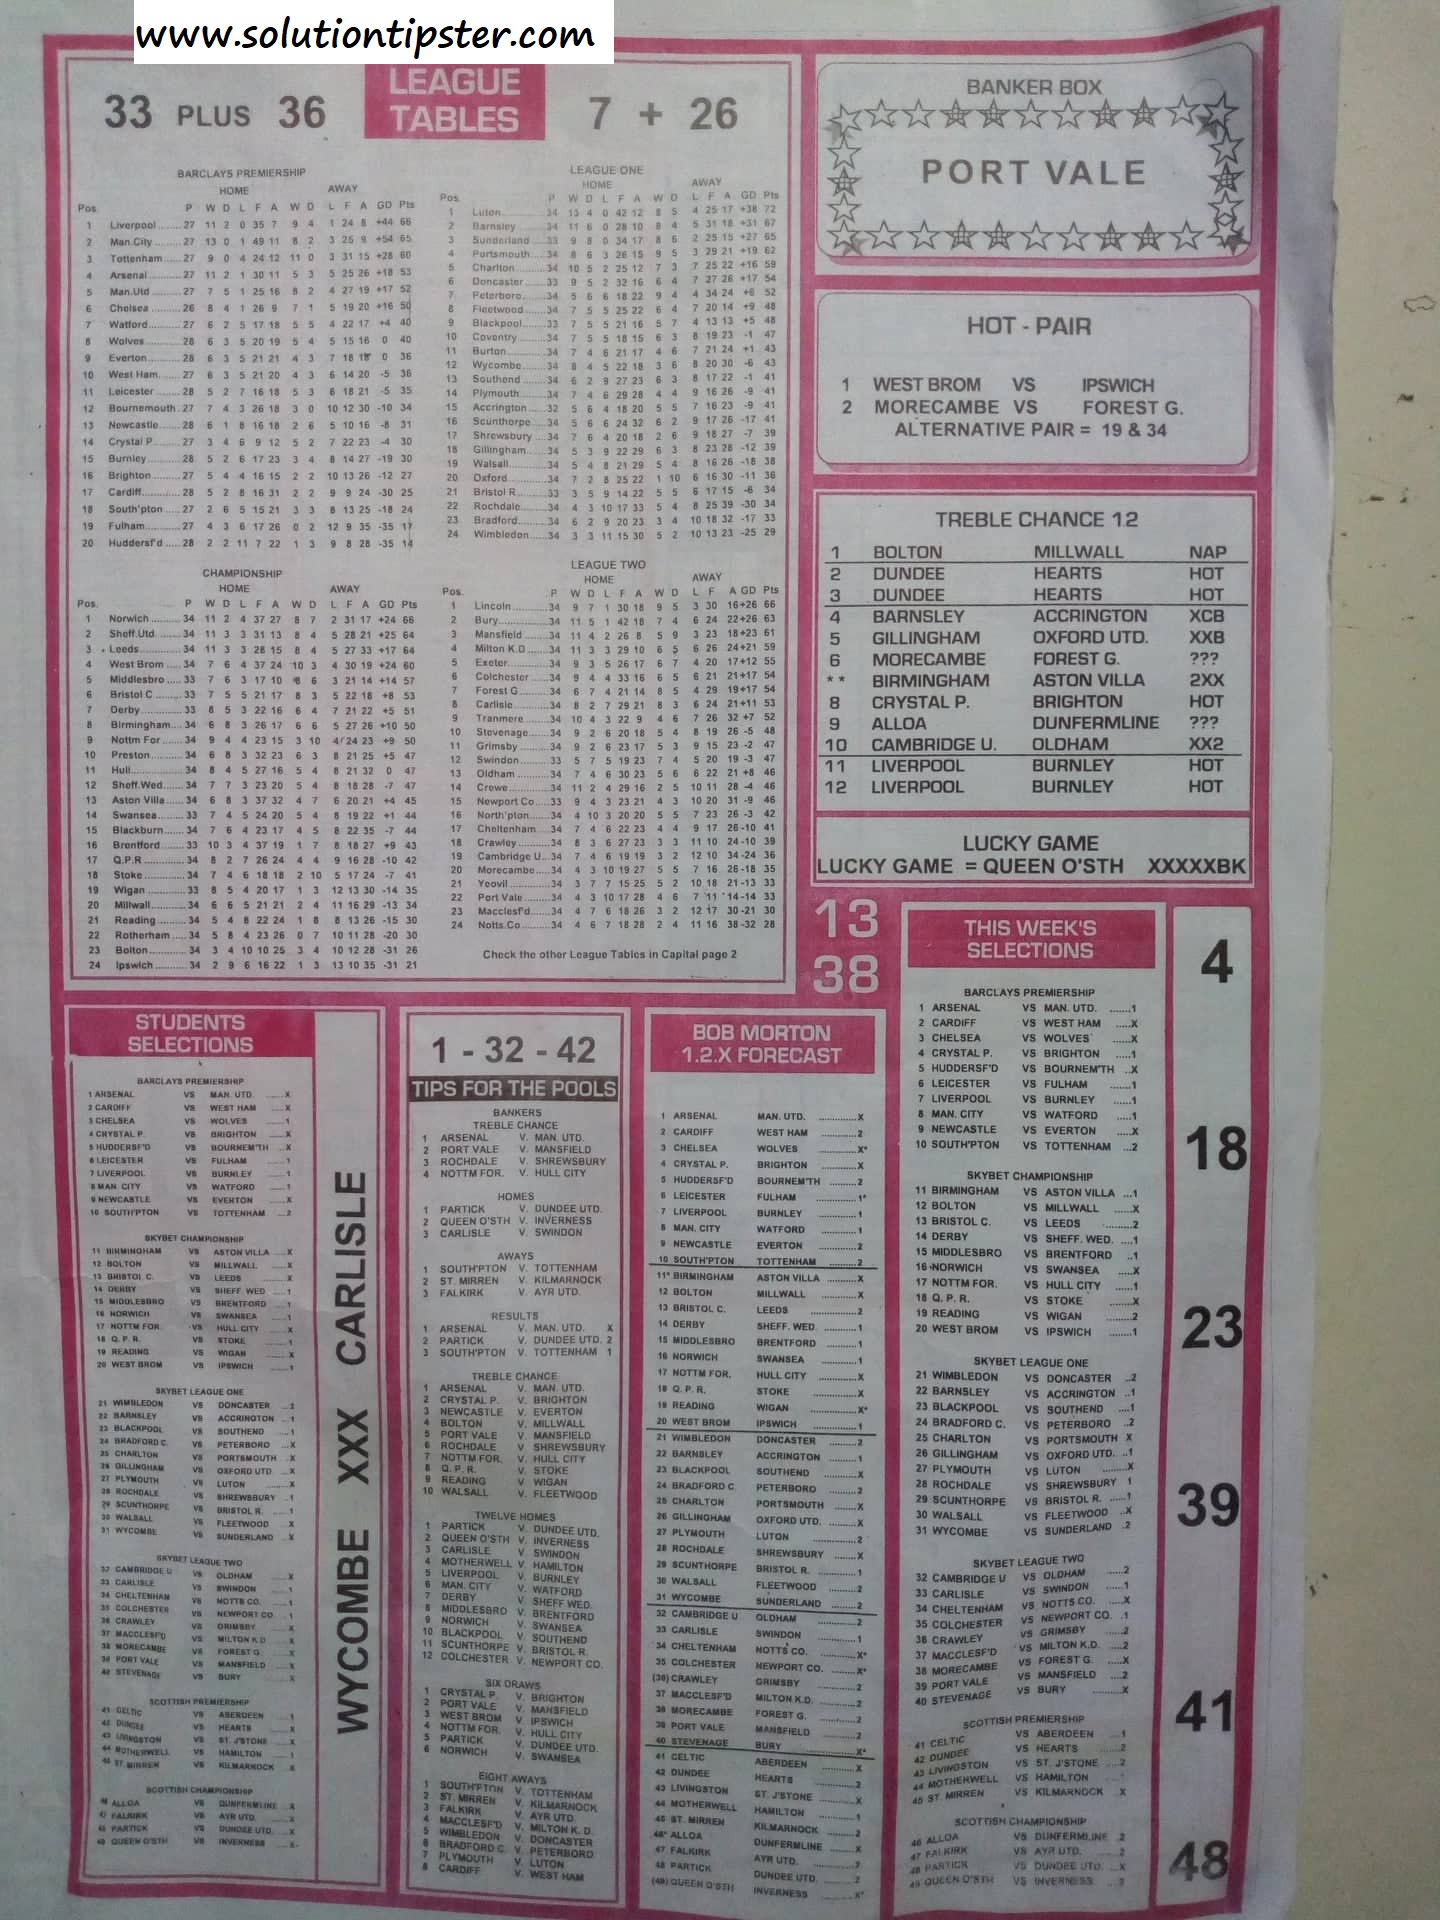 www.solutiontipster.com
33 PLUS 36
LEAGUE
TABLES
7 + 26
BARCLAYS PREMIERSHIP
HOME AWAY
Pos. P W D L F A W D L F A GD Pts
1 Liverpool 27 11 2 0 35 7 9 4 1 24 8 +44 66
2 Man.City 27 13 0 1 49 11 8 2 3 25 9 +54 65
3 Tottenham 27 9 0 4 24 12 11 0 3 31 15 +28 60
4 Arsenal 27 11 2 1 30 11 5 3 5 25 26 +18 53
5 Man.Utd 27 7 5 1 25 16 8 2 4 27 19 +17 52
6 Chelsea 26 8 4 1 26 9 7 1 5 19 20 +16 50
7 Watford 27 6 2 5 17 18 5 5 4 22 17 +4 40
8 Wolves 28 6 3 5 20 19 5 4 5 15 16 0 40
9 Everton 28 6 3 5 21 21 4 3 7 18 18 0 36
10 West Ham 27 6 3 5 21 20 4 3 6 14 20 -5 36
11 Leicester 28 5 2 7 16 18 5 3 6 18 21 -5 35
12 Bournemouth 27 7 4 3 26 18 3 0 10 12 30 -10 34
13 Newcastle 28 6 1 8 16 18 2 6 5 10 16 -8 31
14 Crystal P 27 3 4 6 9 12 5 2 7 22 23 -4 30
15 Burnley 28 5 2 6 17 23 3 4 8 14 27 -19 30
16 Brighton 27 5 4 4 16 15 2 2 10 13 26 -12 27
17 Cardiff 28 5 2 8 16 31 2 2 9 9 24 -30 25
18 South'pton 27 2 6 5 15 21 3 3 8 13 25 -18 24
19 Fulham 27 4 3 6 17 26 0 2 12 9 35 -35 17
20 Huddersf'd 28 2 2 11 7 22 1 3 9 8 28 -35 14
LEAGUE ONE
HOME AWAY
Pos. P W D L F A W D L F A GD Pts
1 Luton 34 13 4 0 42 12 8 5 4 25 17 +38 72
2 Barnsley 34 11 6 0 28 10 8 4 5 31 18 +31 67
3 Sunderland 33 9 8 0 34 17 8 6 2 25 15 +27 65
4 Portsmouth 34 8 6 3 26 15 9 5 3 29 21 +19 62
5 Charlton 34 10 5 2 25 12 7 3 7 25 22 +16 59
6 Doncaster 33 9 5 2 32 16 6 4 7 27 26 +17 54
7 Peterboro 34 5 6 6 18 22 9 4 4 34 24 +6 52
8 Fleetwood 34 7 5 5 25 22 6 4 7 20 14 +9 48
9 Blackpool 33 7 5 5 21 16 5 7 4 13 13 +5 48
10 Coventry 34 7 5 5 18 15 6 3 8 19 23 -1 47
11 Burton 34 7 4 6 21 17 4 6 7 21 24 +1 43
12 Wycombe 34 8 4 5 22 18 3 6 8 20 30 -6 43
13 Southend 34 6 2 9 27 23 6 3 8 17 22 -1 41
14 Plymouth 34 7 4 6 29 28 4 4 9 16 26 -9 41
15 Accrington 32 5 6 4 18 20 5 5 7 16 23 -9 41
16 Scunthorpe 34 5 6 6 24 32 6 2 9 17 26 -17 41
17 Shrewsbury 34 7 6 4 20 18 2 6 9 18 27 -7 39
18 Gillingham 34 5 3 9 22 29 6 3 8 23 28 -12 39
19 Walsall 34 5 4 8 21 29 5 4 8 16 26 -18 38
20 Oxford 34 7 2 8 25 22 1 10 6 16 30 -11 36
21 Bristol R 33 3 5 9 14 22 5 5 6 17 15 -6 34
22 Rochdale 34 4 3 10 17 33 5 4 8 25 39 -30 34
23 Bradford 34 6 2 9 20 23 3 4 10 18 32 -17 33
24 Wimbledon 34 3 3 11 15 30 5 2 10 13 23 -25 29
CHAMPIONSHIP
HOME AWAY
Pos. P W D L F A W D L F A GD Pts
1 Norwich 34 11 2 4 37 27 8 7 2 31 17 +24 66
2 Sheff.Utd 34 11 3 3 31 13 8 4 5 28 21 +25 64
3 Leeds 34 11 3 3 28 15 8 4 5 27 33 +17 64
4 West Brom 34 7 6 4 37 24 10 3 4 30 19 +24 60
5 Middlesbro 33 7 6 3 17 10 8 6 3 21 14 +14 57
6 Bristol C 33 7 5 5 21 17 8 3 5 22 18 +8 53
7 Derby 33 8 5 3 22 16 6 4 7 21 22 +5 51
8 Birmingham 34 6 8 3 26 17 6 6 5 27 26 +10 50
9 Nottm For 34 9 4 4 23 15 3 10 4 24 23 +9 50
10 Preston 34 6 8 3 32 23 6 3 8 21 25 +5 47
11 Hull 34 8 4 5 27 16 5 4 8 21 32 0 47
12 Sheff.Wed 34 7 7 3 23 20 5 4 8 18 28 -7 47
13 Aston Villa 34 6 8 3 37 32 4 7 6 20 21 +4 45
14 Swansea 33 7 4 5 24 20 5 4 8 19 22 +1 44
15 Blackburn 34 7 6 4 23 17 4 5 8 22 35 -7 44
16 Brentford 33 10 3 4 37 19 1 7 8 18 27 +9 43
17 Q.P.R 34 8 2 7 26 24 4 4 9 16 28 -10 42
18 Stoke 34 7 4 6 18 18 2 10 5 17 24 -7 41
19 Wigan 33 8 5 4 20 17 1 3 12 13 30 -14 35
20 Millwall 34 6 6 5 21 21 2 4 11 16 29 -13 34
21 Reading 34 5 4 8 22 24 1 8 8 13 26 -15 30
22 Rotherham 34 5 8 4 23 26 0 7 10 11 28 -20 30
23 Bolton 34 3 4 10 10 25 3 4 10 12 28 -31 26
24 Ipswich 34 2 9 6 16 22 1 3 13 10 35 -31 21
LEAGUE TWO
HOME AWAY
Pos. P W D L F A W D L F A GD Pts
1 Lincoln 34 9 7 1 30 18 9 5 3 30 16+26 66
2 Bury 34 11 5 1 42 18 7 4 6 24 22+26 63
3 Mansfield 34 11 4 2 26 8 5 9 3 23 18+23 61
4 Milton K.D 34 11 3 3 29 10 6 5 6 26 24+21 59
5 Exeter 34 9 3 5 26 17 6 7 4 20 17+12 55
6 Colchester 34 9 4 4 33 16 6 5 6 21 21+17 54
7 Forest G 34 6 7 4 21 14 8 5 4 29 19+17 54
8 Carlisle 34 8 2 7 29 21 8 3 6 24 21+11 53
9 Tranmere 34 10 4 3 22 9 4 6 7 26 32 +7 52
10 Stevenage 34 9 2 6 20 18 5 4 8 19 26 -5 48
11 Grimsby 34 9 2 6 23 17 5 3 9 15 23 -2 47
12 Swindon 33 5 7 5 19 23 7 4 5 20 19 -3 47
13 Oldham 34 7 4 6 30 23 5 6 6 22 21 +8 46
14 Crewe 34 11 2 4 29 16 2 5 10 11 28 -4 46
15 Newport Co 33 9 4 3 23 21 4 3 10 20 31 -9 46
16 North'pton 34 4 10 3 20 20 5 5 7 23 26 -3 42
17 Cheltenham 34 7 4 6 22 23 4 4 9 17 26-10 41
18 Crawley 34 8 3 6 27 23 3 3 11 10 24-10 39
19 Cambridge U 34 7 4 6 19 19 3 2 12 10 34-24 36
20 Morecambe 34 4 3 10 19 27 5 5 7 16 26-18 35
21 Yeovil 34 3 7 7 15 25 5 2 10 18 21-13 33
22 Port Vale 34 4 3 10 17 28 4 6 7 11 14-14 33
23 Macclesf'd 34 4 7 6 18 26 3 2 12 17 30-21 30
24 Notts.Co 34 4 6 7 18 28 2 4 11 16 38-32 28
Check the other League Tables in Capital page 2
BANKER BOX
PORT VALE
HOT - PAIR
1 WEST BROM VS IPSWICH
2 MORECAMBE VS FOREST G.
ALTERNATIVE PAIR = 19 & 34
TREBLE CHANCE 12
1 BOLTON MILLWALL NAP
2 DUNDEE HEARTS HOT
3 DUNDEE HEARTS HOT
4 BARNSLEY ACCRINGTON XCB
5 GILLINGHAM OXFORD UTD. XXB
6 MORECAMBE FOREST G. ???
** BIRMINGHAM ASTON VILLA 2XX
8 CRYSTAL P. BRIGHTON HOT
9 ALLOA DUNFERMLINE ???
10 CAMBRIDGE U. OLDHAM XX2
11 LIVERPOOL BURNLEY HOT
12 LIVERPOOL BURNLEY HOT
LUCKY GAME
LUCKY GAME = QUEEN O'STH XXXXXBK
13
38
STUDENTS
SELECTIONS
BARCLAYS PREMIERSHIP
1 ARSENAL VS MAN. UTD. X
2 CARDIFF VS WEST HAM X
3 CHELSEA VS WOLVES 1
4 CRYSTAL P. VS BRIGHTON X
5 HUDDERSF'D VS BOURNEM'TH X
6 LEICESTER VS FULHAM 1
7 LIVERPOOL VS BURNLEY 1
8 MAN. CITY VS WATFORD 1
9 NEWCASTLE VS EVERTON X
10 SOUTH'PTON VS TOTTENHAM 2
SKYBET CHAMPIONSHIP
11 BIRMINGHAM VS ASTON VILLA X
12 BOLTON VS MILLWALL X
13 BRISTOL C. VS LEEDS X
14 DERBY VS SHEFF. WED 1
15 MIDDLESBRO VS BRENTFORD 1
16 NORWICH VS SWANSEA 1
17 NOTTM FOR. VS HULL CITY X
18 Q. P. R. VS STOKE 1
19 READING VS WIGAN X
20 WEST BROM VS IPSWICH 1
SKYBET LEAGUE ONE
21 WIMBLEDON VS DONCASTER 2
22 BARNSLEY VS ACCRINGTON 1
23 BLACKPOOL VS SOUTHEND 1
24 BRADFORD C. VS PETERBORO X
25 CHARLTON VS PORTSMOUTH X
26 GILLINGHAM VS OXFORD UTD X
27 PLYMOUTH VS LUTON X
28 ROCHDALE VS SHREWSBURY 1
29 SCUNTHORPE VS BRISTOL R. 1
30 WALSALL VS FLEETWOOD X
31 WYCOMBE VS SUNDERLAND X
SKYBET LEAGUE TWO
32 CAMBRIDGE U VS OLDHAM X
33 CARLISLE VS SWINDON 1
34 CHELTENHAM VS NOTTS CO. 1
35 COLCHESTER VS NEWPORT CO. 1
36 CRAWLEY VS GRIMSBY X
37 MACCLESF'D VS MILTON K.D X
38 MORECAMBE VS FOREST G. X
39 PORT VALE VS MANSFIELD X
40 STEVENAGE VS BURY X
SCOTTISH PREMIERSHIP
41 CELTIC VS ABERDEEN 1
42 DUNDEE VS HEARTS X
43 LIVINGSTON VS ST. J'STONE X
44 MOTHERWELL VS HAMILTON 1
45 ST. MIRREN VS KILMARNOCK X
SCOTTISH CHAMPIONSHIP
46 ALLOA VS DUNFERMLINE X
47 FALKIRK VS AYR UTD. X
48 PARTICK VS DUNDEE UTD. X
49 QUEEN O'STH VS INVERNESS
WYCOMBE XXX CARLISLE
1 - 32 - 42
TIPS FOR THE POOLS
BANKERS
TREBLE CHANCE
1 ARSENAL V. MAN. UTD.
2 PORT VALE V. MANSFIELD
3 ROCHDALE V. SHREWSBURY
4 NOTTM FOR. V. HULL CITY
HOMES
1 PARTICK V. DUNDEE UTD.
2 QUEEN O'STH V. INVERNESS
3 CARLISLE V. SWINDON
AWAYS
1 SOUTH'PTON V. TOTTENHAM
2 ST. MIRREN V. KILMARNOCK
3 FALKIRK V. AYR UTD.
RESULTS
1 ARSENAL V. MAN. UTD. X
2 PARTICK V. DUNDEE UTD. 2
3 SOUTH'PTON V. TOTTENHAM 1
TREBLE CHANCE
1 ARSENAL V. MAN. UTD.
2 CRYSTAL P. V. BRIGHTON
3 NEWCASTLE V. EVERTON
4 BOLTON V. MILLWALL
5 PORT VALE V. MANSFIELD
6 ROCHDALE V. SHREWSBURY
7 NOTTM FOR. V. HULL CITY
8 Q. P. R. V. STOKE
9 READING V. WIGAN
10 WALSALL V. FLEETWOOD
TWELVE HOMES
1 PARTICK V. DUNDEE UTD.
2 QUEEN O'STH V. INVERNESS
3 CARLISLE V. SWINDON
4 MOTHERWELL V. HAMILTON
5 LIVERPOOL V. BURNLEY
6 MAN. CITY V. WATFORD
7 DERBY V. SHEFF WED.
8 MIDDLESBRO V. BRENTFORD
9 NORWICH V. SWANSEA
10 BLACKPOOL V. SOUTHEND
11 SCUNTHORPE V. BRISTOL R.
12 COLCHESTER V. NEWPORT CO.
SIX DRAWS
1 CRYSTAL P. V. BRIGHTON
2 PORT VALE V. MANSFIELD
3 WEST BROM V. IPSWICH
4 NOTTM FOR. V. HULL CITY
5 PARTICK V. DUNDEE UTD.
6 NORWICH V. SWANSEA
EIGHT AWAYS
1 SOUTH'PTON V. TOTTENHAM
2 ST. MIRREN V. KILMARNOCK
3 FALKIRK V. AYR UTD.
4 MACCLESF'D V. MILTON K. D.
5 WIMBLEDON V. DONCASTER
6 BRADFORD C. V. PETERBORO
7 PLYMOUTH V. LUTON
8 CARDIFF V. WEST HAM
BOB MORTON
1.2.X FORECAST
1 ARSENAL MAN. UTD. X
2 CARDIFF WEST HAM 2
3 CHELSEA WOLVES X*
4 CRYSTAL P. BRIGHTON X
5 HUDDERSF'D BOURNEM'TH 2
6 LEICESTER FULHAM 1*
7 LIVERPOOL BURNLEY 1
8 MAN. CITY WATFORD 1
9 NEWCASTLE EVERTON 2
10 SOUTH'PTON TOTTENHAM 2
11* BIRMINGHAM ASTON VILLA X
12 BOLTON MILLWALL X
13 BRISTOL C. LEEDS 2
14 DERBY SHEFF. WED. 1
15 MIDDLESBRO BRENTFORD 1
16 NORWICH SWANSEA 1
17 NOTTM FOR. HULL CITY X
18 Q. P. R. STOKE X
19 READING WIGAN X*
20 WEST BROM IPSWICH 1
21 WIMBLEDON DONCASTER 2
22 BARNSLEY ACCRINGTON 1
23 BLACKPOOL SOUTHEND X
24 BRADFORD C. PETERBORO 2
25 CHARLTON PORTSMOUTH X
26 GILLINGHAM OXFORD UTD. X
27 PLYMOUTH LUTON 2
28 ROCHDALE SHREWSBURY X
29 SCUNTHORPE BRISTOL R. 1
30 WALSALL FLEETWOOD 2
31 WYCOMBE SUNDERLAND 2
32 CAMBRIDGE U OLDHAM 2
33 CARLISLE SWINDON 1
34 CHELTENHAM NOTTS CO. X*
35 COLCHESTER NEWPORT CO. X*
(36) CRAWLEY GRIMSBY 2
37 MACCLESF'D MILTON K.D. 2
38 MORECAMBE FOREST G. 2
39 PORT VALE MANSFIELD 2
40 STEVENAGE BURY X*
41 CELTIC ABERDEEN X
42 DUNDEE HEARTS 2
43 LIVINGSTON ST. J'STONE X
44 MOTHERWELL HAMILTON 1
45 ST. MIRREN KILMARNOCK 2
46* ALLOA DUNFERMLINE X
47 FALKIRK AYR UTD. 2
48 PARTICK DUNDEE UTD. 2
(49) QUEEN O'STH INVERNESS X*
THIS WEEK'S
SELECTIONS
BARCLAYS PREMIERSHIP
1 ARSENAL VS MAN. UTD. 1
2 CARDIFF VS WEST HAM X
3 CHELSEA VS WOLVES X
4 CRYSTAL P. VS BRIGHTON 1
5 HUDDERSF'D VS BOURNEM'TH X
6 LEICESTER VS FULHAM 1
7 LIVERPOOL VS BURNLEY 1
8 MAN. CITY VS WATFORD 1
9 NEWCASTLE VS EVERTON X
10 SOUTH'PTON VS TOTTENHAM 2
SKYBET CHAMPIONSHIP
11 BIRMINGHAM VS ASTON VILLA 1
12 BOLTON VS MILLWALL X
13 BRISTOL C. VS LEEDS 2
14 DERBY VS SHEFF. WED. 1
15 MIDDLESBRO VS BRENTFORD 1
16 NORWICH VS SWANSEA X
17 NOTTM FOR. VS HULL CITY 1
18 Q. P. R. VS STOKE X
19 READING VS WIGAN 2
20 WEST BROM VS IPSWICH 1
SKYBET LEAGUE ONE
21 WIMBLEDON VS DONCASTER 2
22 BARNSLEY VS ACCRINGTON 1
23 BLACKPOOL VS SOUTHEND 1
24 BRADFORD C. VS PETERBORO 2
25 CHARLTON VS PORTSMOUTH X
26 GILLINGHAM VS OXFORD UTD. 1
27 PLYMOUTH VS LUTON X
28 ROCHDALE VS SHREWSBURY 1
29 SCUNTHORPE VS BRISTOL R. 1
30 WALSALL VS FLEETWOOD X
31 WYCOMBE VS SUNDERLAND 2
SKYBET LEAGUE TWO
32 CAMBRIDGE U VS OLDHAM 2
33 CARLISLE VS SWINDON 1
34 CHELTENHAM VS NOTTS CO. X
35 COLCHESTER VS NEWPORT CO. 1
36 CRAWLEY VS GRIMSBY 2
37 MACCLESF'D VS MILTON K.D. 2
38 MORECAMBE VS FOREST G. X
39 PORT VALE VS MANSFIELD 2
40 STEVENAGE VS BURY X
SCOTTISH PREMIERSHIP
41 CELTIC VS ABERDEEN 1
42 DUNDEE VS HEARTS 2
43 LIVINGSTON VS ST. J'STONE 2
44 MOTHERWELL VS HAMILTON 1
45 ST. MIRREN VS KILMARNOCK X
SCOTTISH CHAMPIONSHIP
46 ALLOA VS DUNFERMLINE 2
47 FALKIRK VS AYR UTD. 2
48 PARTICK VS DUNDEE UTD. X
49 QUEEN O'STH VS INVERNESS
4
18
23
39
41
48